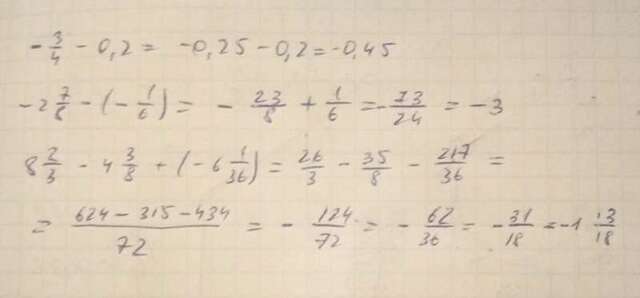 -3/4 - 0,2 = -0,25 - 0,2 = -0,45
-2 7/8 - (-1/6) = - 23/8 + 1/6 = - 73/24 = -3
8 2/3 - 4 3/8 + (-6 1/36) = 26/3 - 35/8 - 217/36 =
= (624 - 315 - 434)/72 = - 124/72 = - 62/36 = - 31/18 = -1 13/18